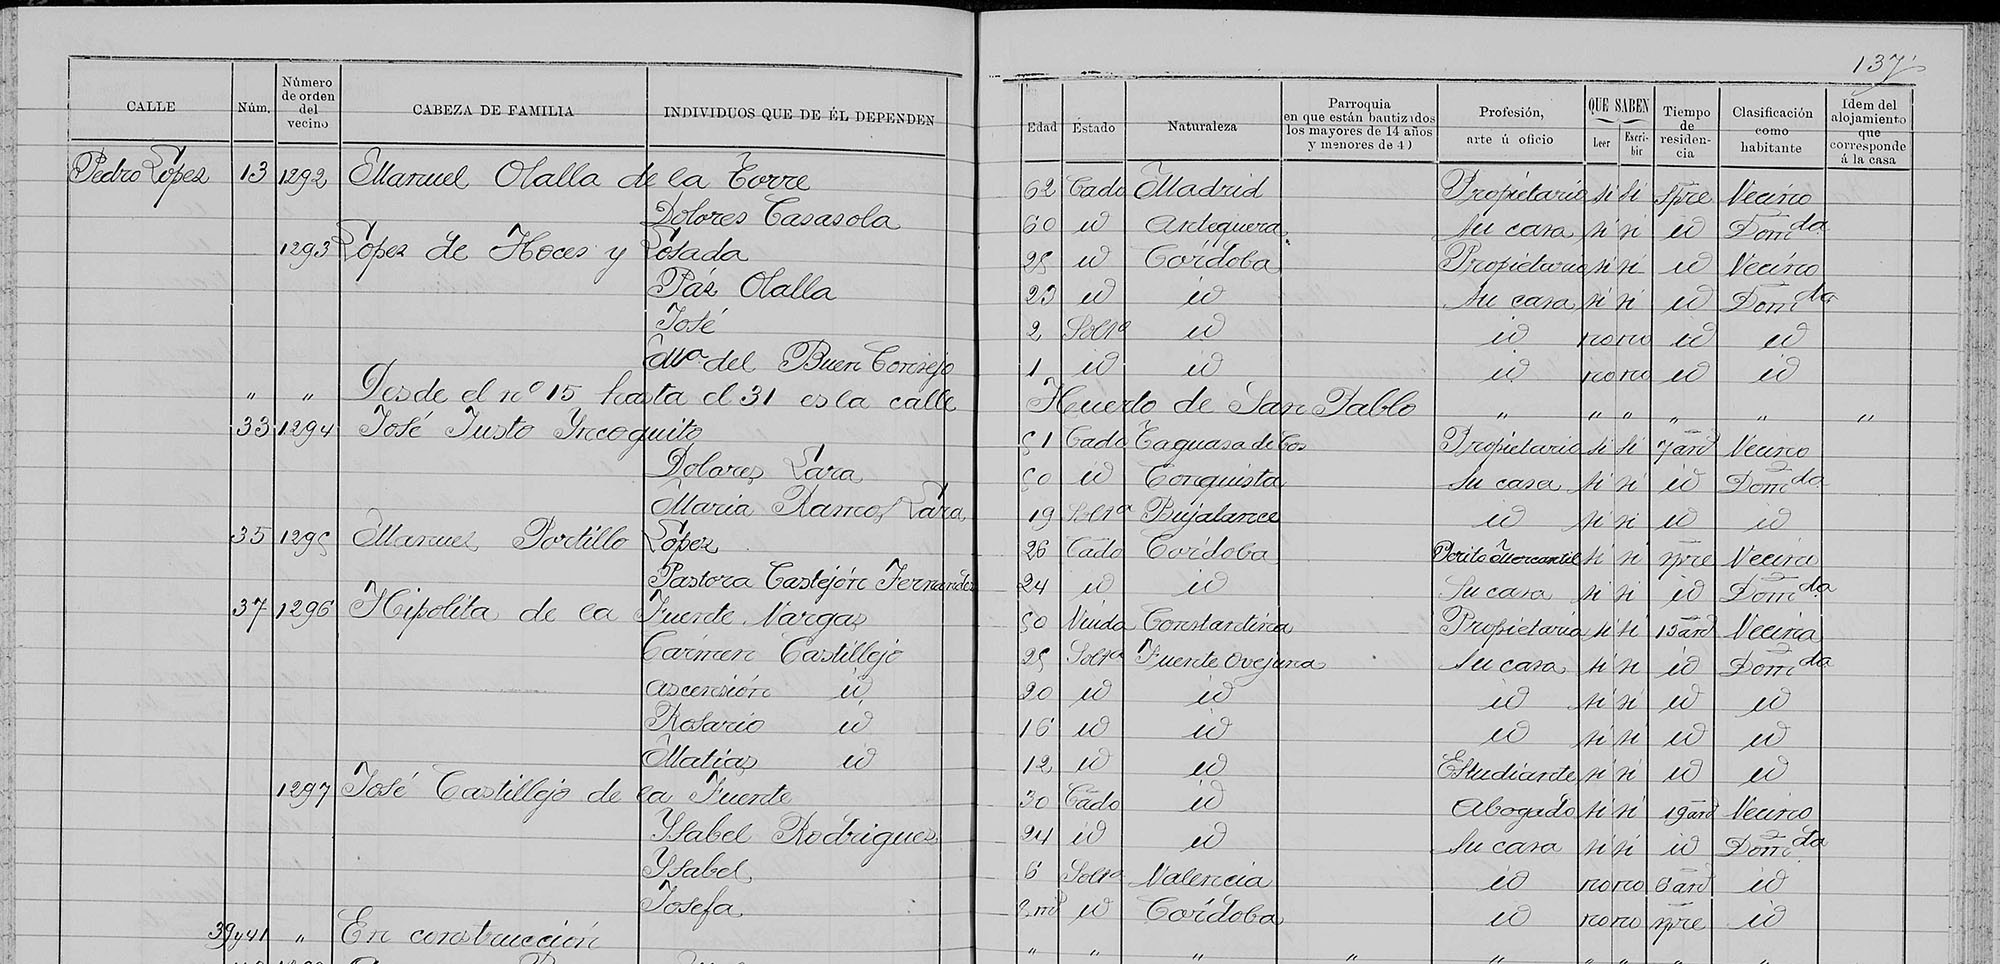 137
CALLE Núm. Número de orden del vecino CABEZA DE FAMILIA INDIVIDUOS QUE DE ÉL DEPENDEN Edad Estado Naturaleza Parroquia en que están bautizidos los mayores de 14 años y menores de 4) Profesión, arte ú oficio QUE SABEN Leer Escribir Tiempo de residencia Clasificación como habitante Idem del alojamiento que corresponde á la casa
Pedro López 13 1292 Manuel Olalla de la Torre 62 Cado Madrid Propietario si si spre Vecino
Dolores Casasola 60 id Antequera Su casa si si id Domda
1293 López de Hoces y Losada 25 id Córdoba Propietario si si id Vecino
Páz Olalla 23 id id Su casa si si id Domda
José 2 Soltº id id no no id id
Mª del Buen Consejo 1 id id id no no id id
" " Desde el nº 15 hasta el 31 es la calle Huerto de San Pablo " " " " " "
33 1294 José Justo Yncoguito 51 Cado Propietario si si 7 añs Vecino
Dolores Lara 50 id Conquista Su casa si si id Domda
María Ramos Lara 19 Soltª Bujalance id si si id id
35 1295 Manuel Portillo López 26 Cado Córdoba Perito Mercantil si si spre Vecino
Pastora Castejón Fernandez 24 id id Su casa si si id Domda
37 1296 Hipólita de la Fuente Vargas 50 Viuda Constantina Propietaria si si 15 añs Vecina
Cármen Castillejo 25 Soltª Fuente Ovejuna Su casa si si id Domda
Ascensión id 20 id id id si si id id
Rosario id 16 id id id si si id id
Matias id 12 id id Estudiante si si id id
1297 José Castillejo de la Fuente 30 Cado id Abogado si si 19 añs Vecino
Ysabel Rodriguez 24 id id Su casa si si id Domda
Ysabel 6 Soltª Valencia id no no id
Josefa 2 ms id Córdoba id no no spre id
39 y 41 " En construcción " " " " " " " " "